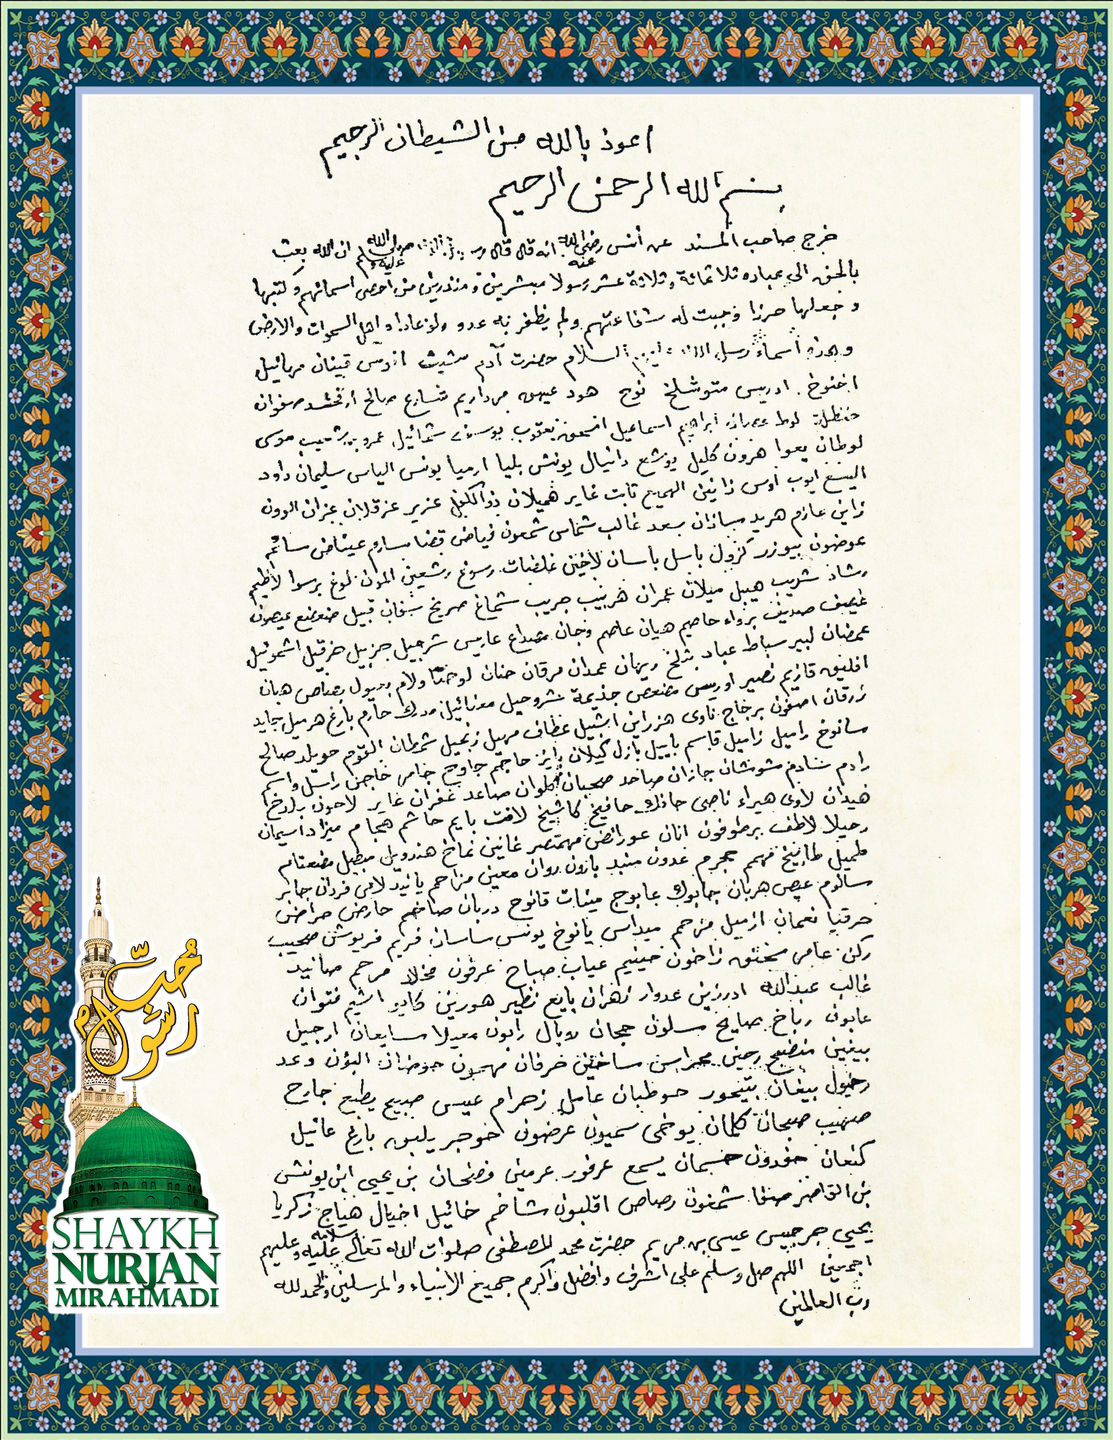 اعوذ بالله من الشيطان الرجيم
بسم الله الرحمن الرحيم
خرج صاحب المسند عن أنس رضي الله عنه انه قال قال صلى الله عليه وسلم ان الله بعث
بالحق الى عباده ثلاثمائة وثلاثة عشر رسولا مبشرين ومنذرين من احصى اسمائهم وكتبها
وجعلها حرزا وجبت له شفاعتهم ولم يظفر به عدو ولو عاداه اهل السموات والارض
وهذه أسماء رسل الله السلام حضرت آدم شيث انوس قينان مهيائيل
اخنوخ ادريس متوشلخ نوح هود شارع صالح ارفخشد صفوان
حنظلة لوط ابراهيم اسماعيل اسحق يعقوب يوسف شمائيل شعيب موسى
لوطان يعوا هرون كليل يوشع دانيال يونش بليا ارميا يونس الياس سليمان داود
اليسع ايوب اوس ذانين الهميع ثابت غابر هميلان ذوالكفل عزير عزقلان عزان
زاين عازم هربد سعد غالب شماس شمعون فياض قضا سارم عيناض سائم
عوضون بيوزر كزول باسل باسان لاخين غلضات رسوغ رشعين المون لوغ برسوا لاظيم
رشاد شريب هيبل ميلان عمران هربيب جريت شماخ صريخ سفان قبيل ضعضع عيصون
عيصف صديف برواء حاصيم هيان عاصم وجان مصداع عاريس شرحبيل حزبيل حزقيل اشموئيل
عمصان لبير سباط عباد ثلخ ريهان عمدان مرقان حنان لوحنا ولام بصاص هبان
افليق قازيم نصير اوريس مضعص جذيمة شروحيل معزائيل مدرك حارم بارغ هرميل جابد
زرقان اصفون برجاج ناوى هزراين اشبيل عطاف مهيل زنجيل شمطان القوم حوبلد صالح
سانوخ راميل زاميل قاسم باييل بازل كيلان حاجم جاوح جامر حاجن راسل واسم
رادم سادم شوشان جازان صاحد صحبان كلوان صاعد غفران غاير لاحون بلدخ
هيدان لاوى هيراء ناصى حافك حافيخ كاشيخ لافت نايم حاشم هجام ميزاد اسيمان
رحيلا لاطف برطوفون ابان عورائض مهتصر عانين نماخ هندويل مبصل مضعتام
طميل طابيخ مهيم حجرم عدون منبد بارون روان معين مزاحم يانيد لامى فردان جابر
سالوم عيص هربان جابوك عابوج مينات قانوح دربان صاخم حارض حراض
حرقيا نعمان ازميل مزحم ميداس يانوخ يونس ساسان فريم فريوش صحيب
ركن عامر سحنق زاخون حينيم عياب صباح عرفون مخلاد مرحم صانيد
غالب عبدالله ادرزين عدوان زهران بايع نظير هورين كايو اشيم فتوان
عابون رباخ صابح سلون حجان روبال رابون معيلا سايعان ارجيل
بيغين متضح رحين محراس ساخين خرفان مهمون حوضان البؤن وعد
رخيول بيغان بتيحور حوظبان عامل زهرام عيس صبيح يطبع جارح
صهيب صبحان كلمان يوخى سميون عرضون حوحر يلبق بارع عائيل
كنعان حفدون حسمان يسمع عرفور عرمين فضحان صفا شمعون
رصاص اقلبون شاخم خائيل اخيال هياج زكريا
يحيى جرجيس عيسى بن مريم حضرت محمد المصطفى صلوات الله تعالى عليه وعليهم
اجمعين اللهم صل وسلم على اشرف وافضل واكرم جميع الانبياء والمرسلين والحمد لله
رب العالمين
محب رسول
SHAYKH
NURJAN
MIRAHMADI